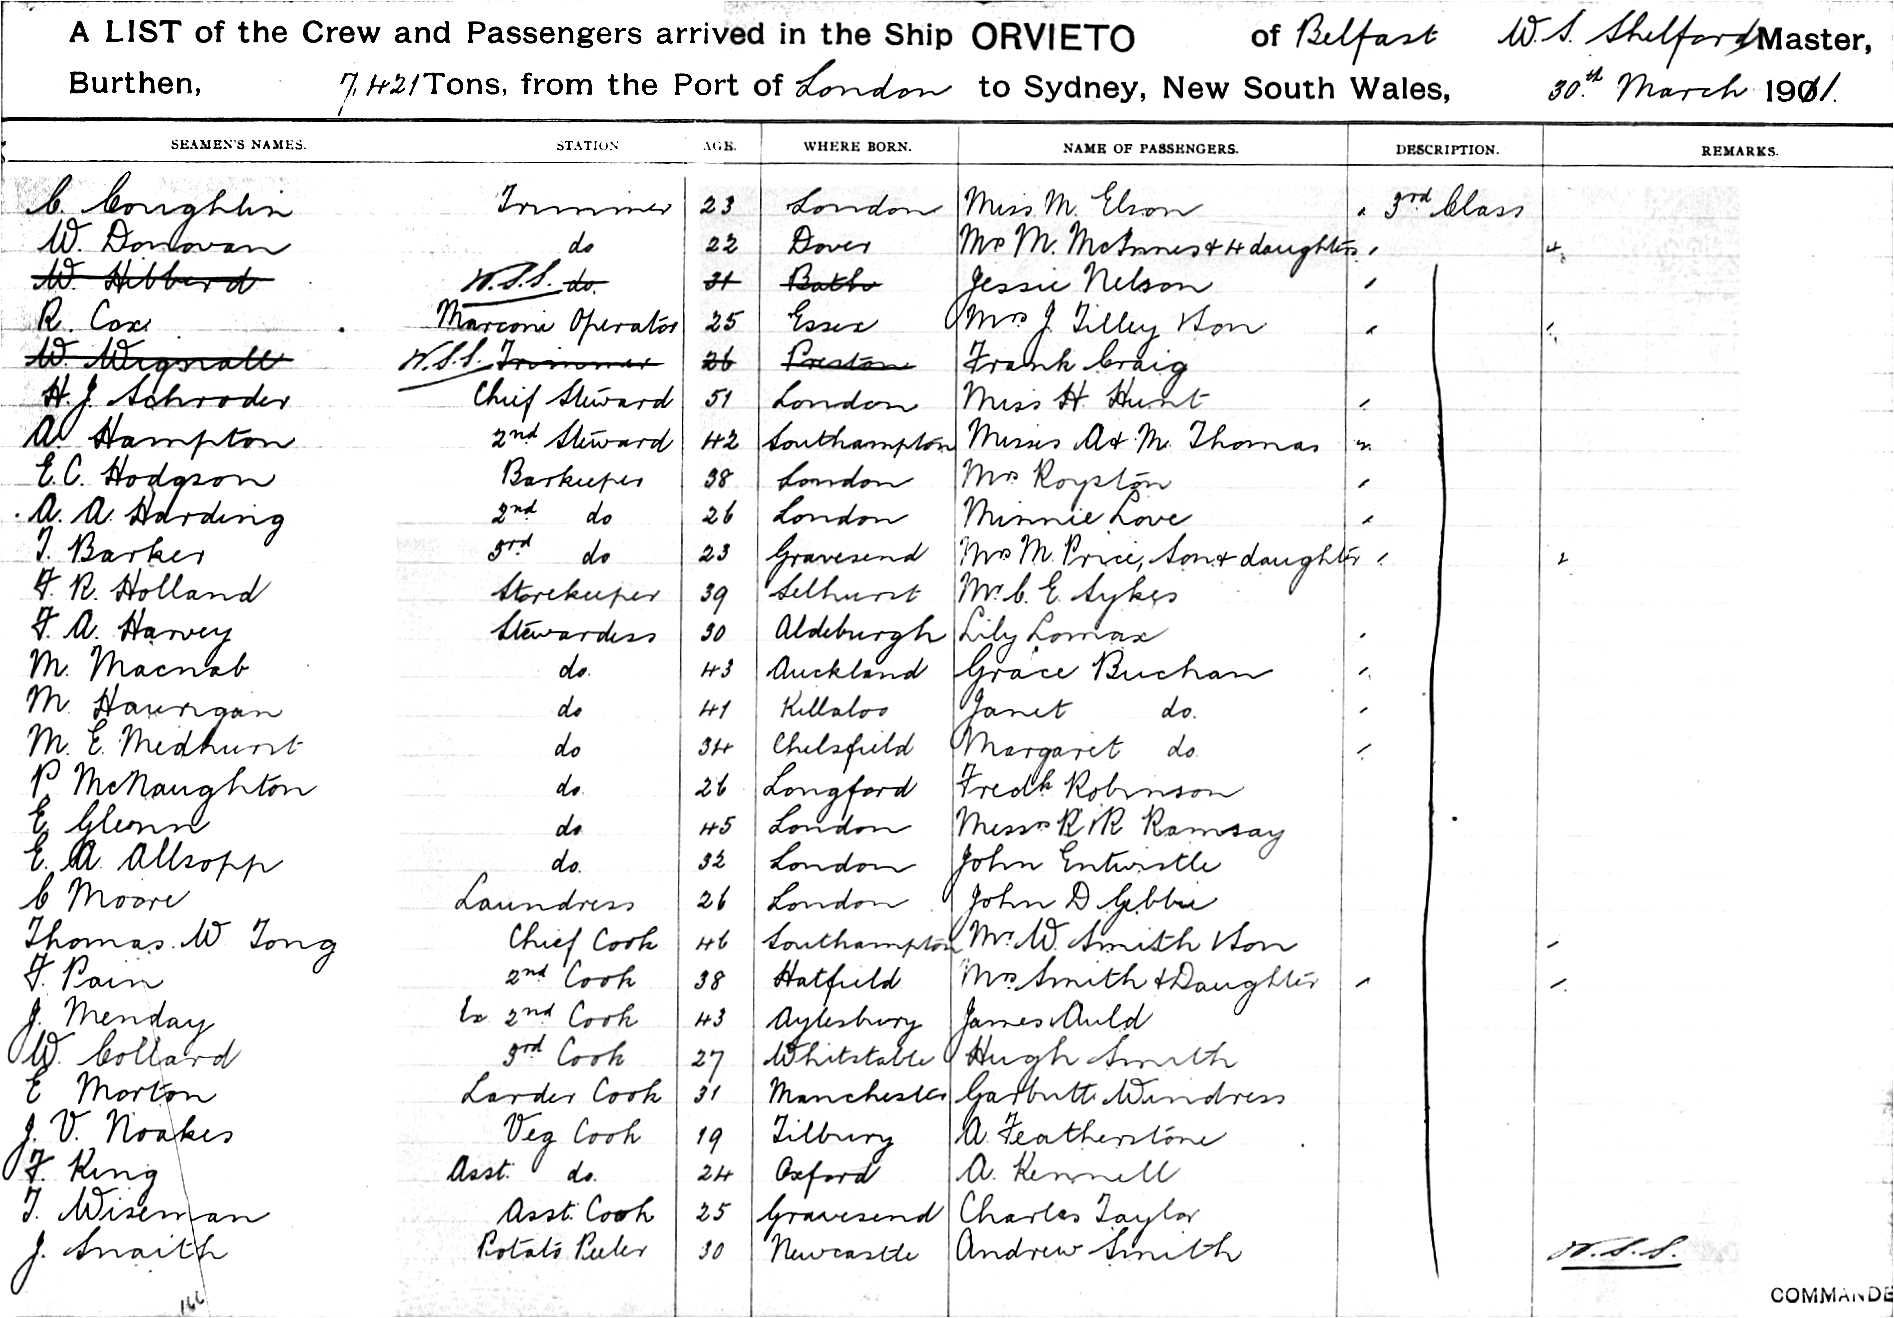 A LIST of the Crew and Passengers arrived in the Ship ORVIETO of Belfast W. S. Shelford Master,
Burthen, 7,421 Tons, from the Port of London to Sydney, New South Wales, 30th March 1911.
SEAMEN'S NAMES. STATION AGE. WHERE BORN. NAME OF PASSENGERS. DESCRIPTION. REMARKS.
C. Coughlin Trimmer 23 London Miss M. Elson 3rd Class
W. Donovan do 22 Dover Mrs M. McInnes & 4 daughters 4
W. Hibberd W.S.S. do. 31 Bath Jessie Nelson
R. Cox Marconi Operator 25 Essex Mrs J. Tilley & Son
W. Wignall W.S.S. Trimmer 26 Preston Frank Craig
H. J. Schroder Chief Steward 51 London Miss H. Hunt
A. Hampton 2nd Steward 42 Southampton Misses A & M. Thomas
E. C. Hodgson Barkeeper 38 London Mrs Royston
A. A. Harding 2nd do 26 London Minnie Love
T. Barker 3rd do 23 Gravesend Mrs M. Price, Son & daughter 2
F. R. Holland Storekeeper 39 Selhurst Mr. C. E. Sykes
F. A. Harvey Stewardess 30 Aldeburgh Lily Lomax
M. Macnab do. 43 Auckland Grace Buchan
M. Haurigan do 41 Killaloo Janet do.
M. E. Medhurst do 34 Chelsfield Margaret do
P McNaughton do. 26 Longford Fredk Robinson
E. Glenn do 45 London Messrs R & R Ramsay
E. A. Allsopp do. 32 London John Entwistle
C Moore Laundress 26 London John D. Gebbie
Thomas. W Tong Chief Cook 46 Southampton Mr. W. Smith & Son
F. Pain 2nd Cook 38 Hatfield Mrs Smith & Daughter
J. Menday Ex 2nd Cook 43 Aylesbury James Auld
W. Collard 3rd Cook 27 Whitstable Hugh Smith
E Morton Larder Cook 31 Manchester Garbutt Windress
J. V. Noakes Veg Cook 19 Tilbury A. Featherstone
F. King Asst. do. 24 Oxford A. Kennell
T. Wiseman Asst. Cook 25 Gravesend Charles Taylor
J. Snaith Potato Peeler 30 Newcastle Andrew Smith W.S.S.
166
COMMANDE